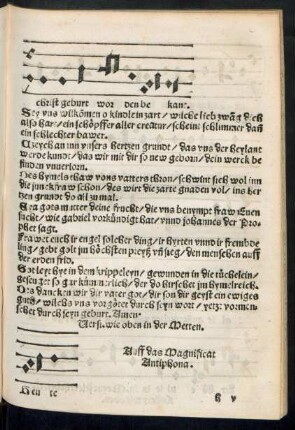 christ geburt wor den be kant.
Sey vns wilkomen o kindlein zart / wilche lieb zwang dich
also hart / ein schöpffer aller creatur / schein schlimmer dañ
ein schlechter bawer.
Czeych an inn vnsers hertzen grundt / das vns der heylant
werde kundt / das wir mit dir so new geborn / dein werck be
finden vnuerlorn.
Des hymels thaw vons vatters thron / schwint sich wol inn
die junckfraw schon / des wirt die zarte gnaden vol / ins her
tzen grunde do all zu mal.
gots mutter deine frucht / die vns benympt fraw Euen
sucht / wie gabriel vorkündigt hat / vnnd johannes der Pro
phet sagt.
Frawet euch ir engel solcher ding / ir hyrten vnnd ir frembde
ling / gebt gott im höchsten preyß vñ jeg / den menschen auff
der erden frid.
Got leyt hye in dem krippeleyn / gewunden in die tüchelein /
gar künnerlich / der do hirschet im hymelreich.
Des dancken wir dir vater got / dir son dir geyst ein ewiges
gut / wilchs vns vor götet durch seyn wort / yetz vormen
schet durch seyn geburt. Amen.
Versi. wie oben in der Metten.
Auff das Magnificat
Antiphona.
Heu te